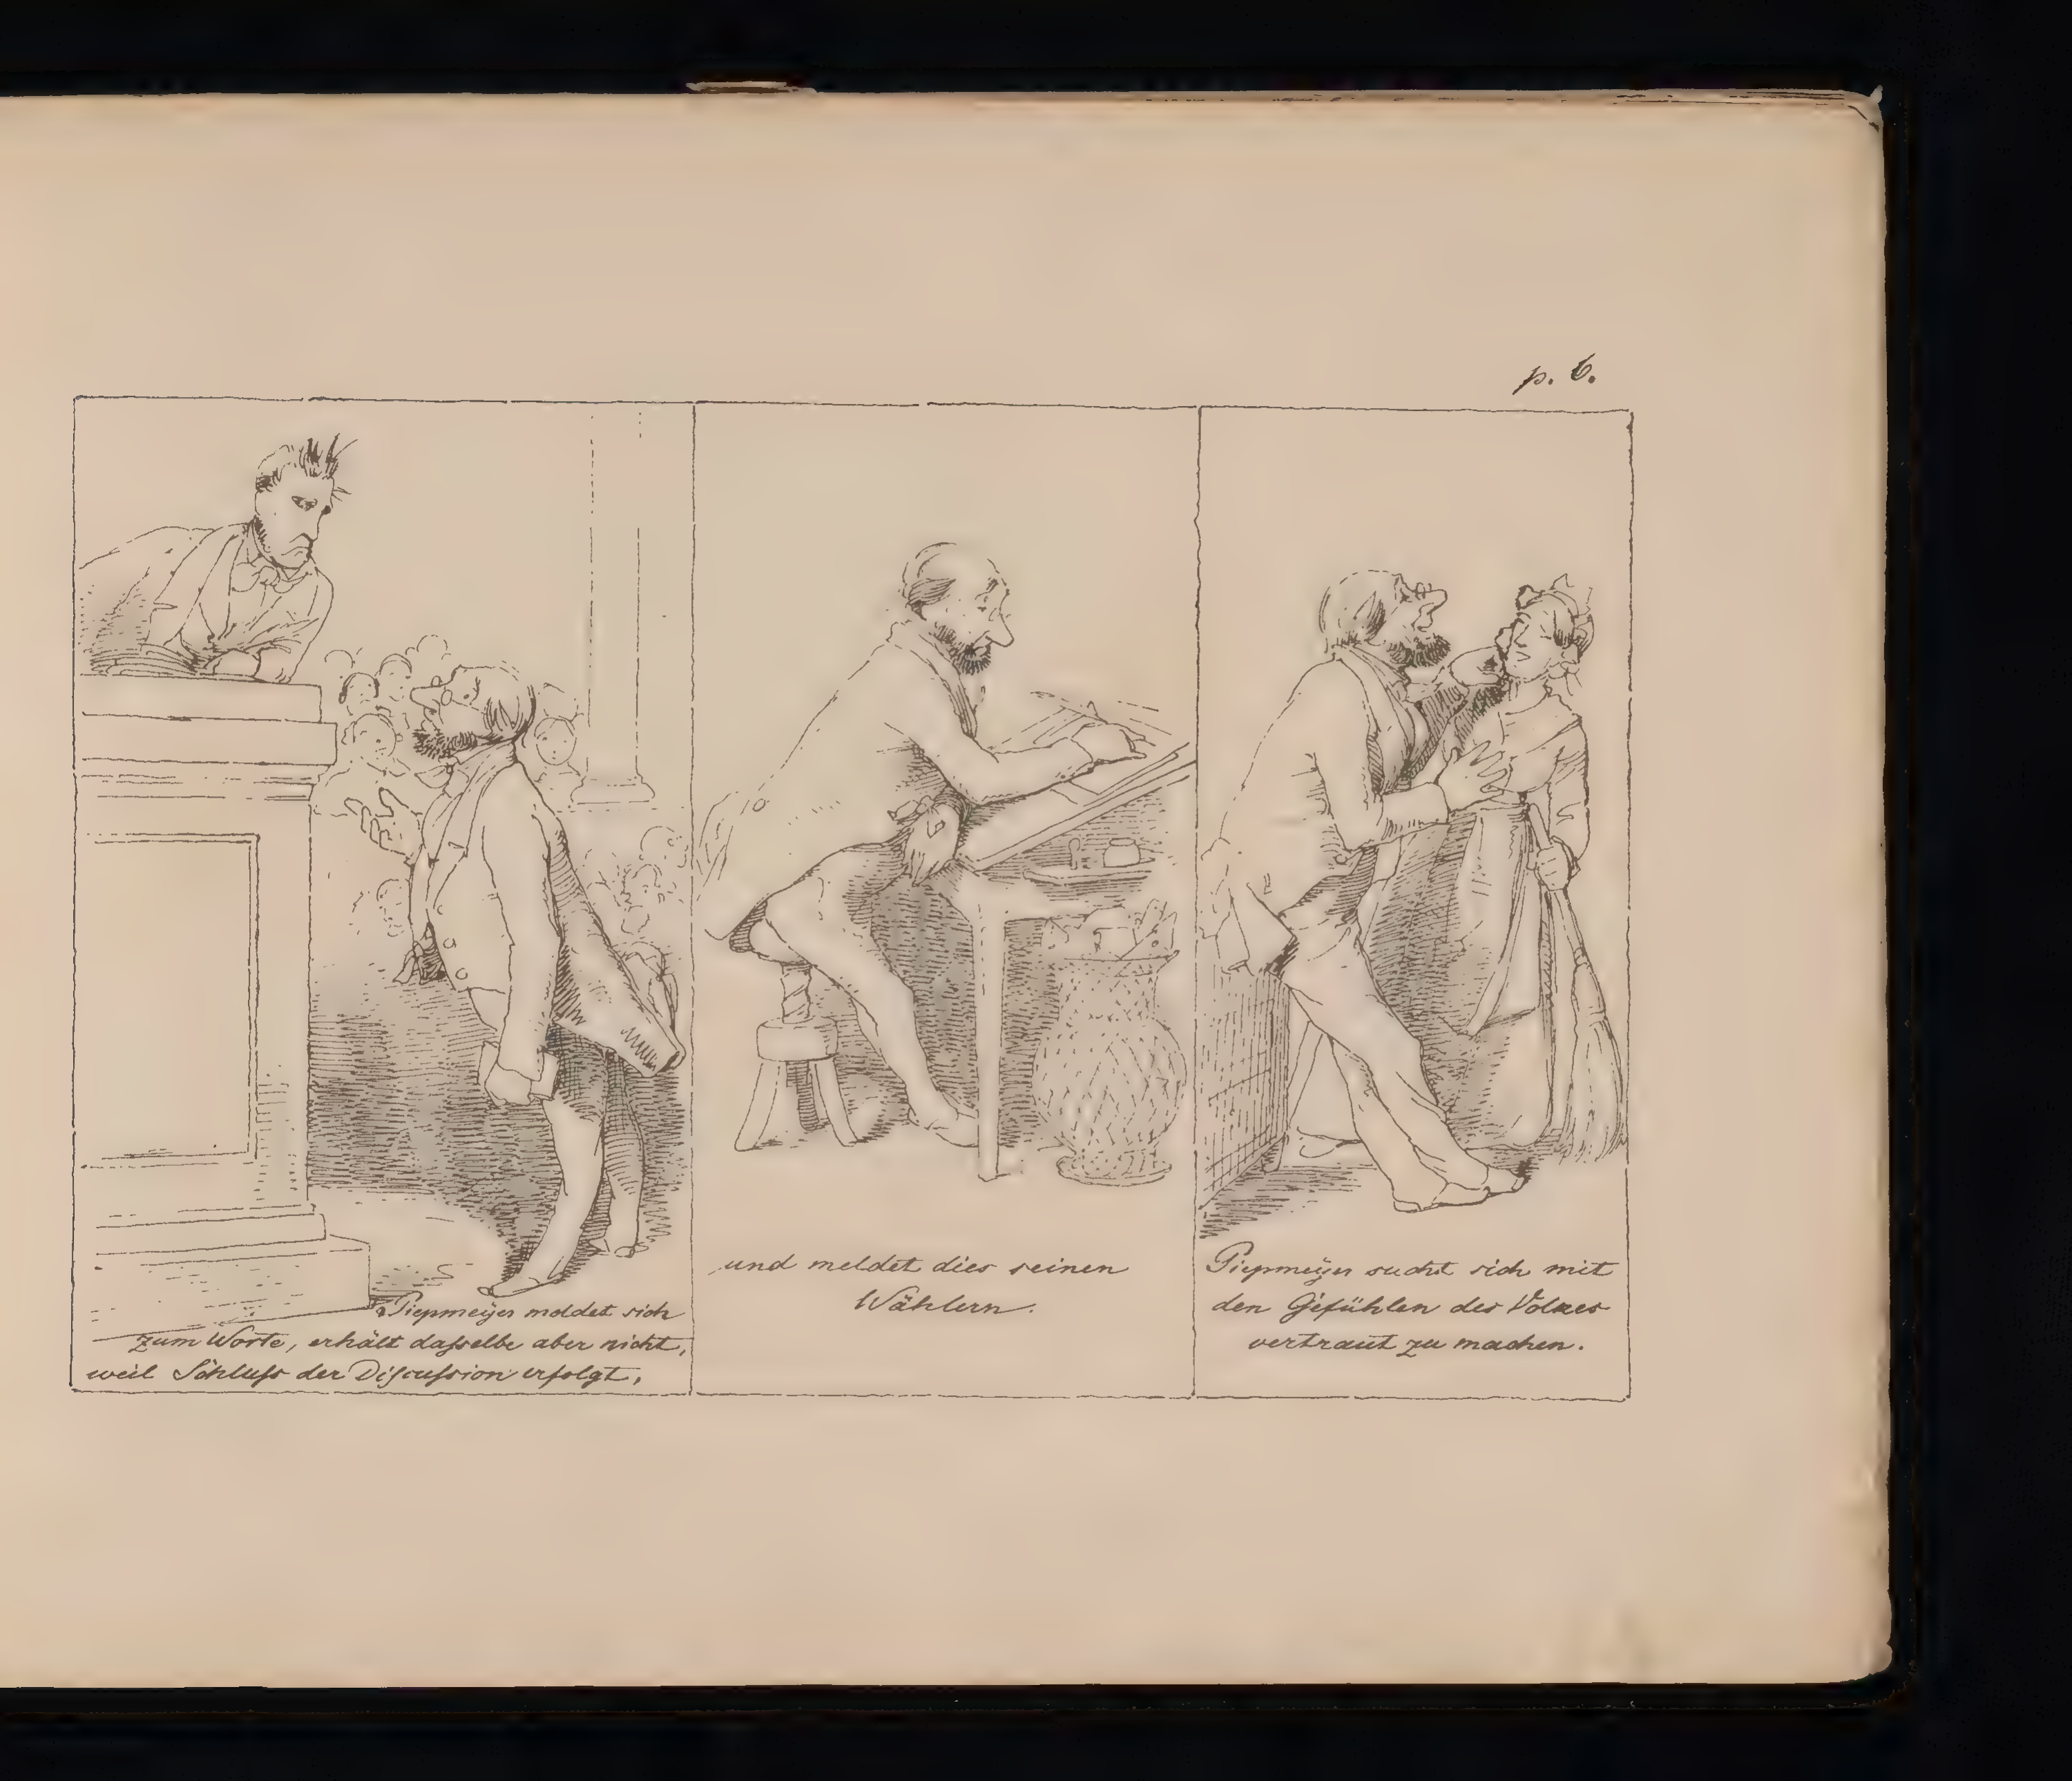 p. 6.
Piepmeÿer meldet sich
zum Worte, erhält daſselbe aber nicht,
weil Schluſs der Diſcuſsion erfolgt,
und meldet dies seinen
Wählern.
Piepmeÿer sucht sich mit
den Gefühlen des Volkes
vertraut zu machen.